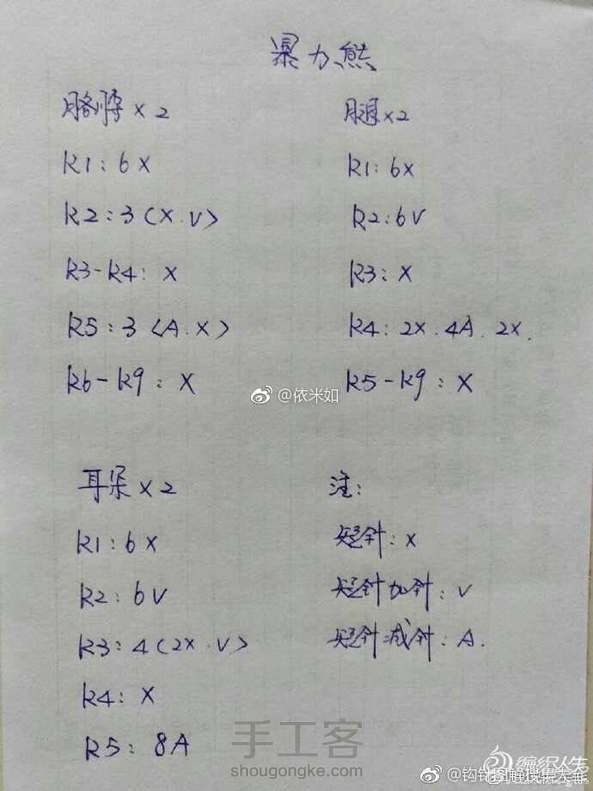 暴力熊
胳膊 x 2
R1: 6x
R2: 3(x.v)
R3-R4: x
R5: 3(A.x)
R6-R9: x
腿x2
R1: 6x
R2: 6v
R3: x
R4: 2x.4A.2x.
R5-R9: x
@依米如
耳朵 x 2
R1: 6x
R2: 6v
R3: 4(2x.v)
R4: x
R5: 8A
注:
短针: x
短针加针: v
短针减针: A.
手工客
shougongke.com
编织人生
@钩针图解搜集大全